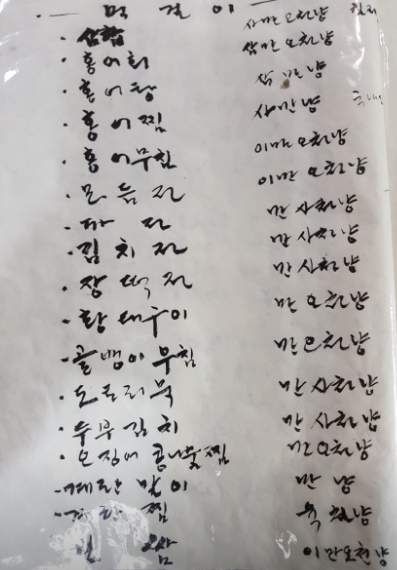 먹걸이
· 삼합 사만오천냥
· 홍어회 삼만오천냥
· 홍어탕 삼만냥
· 홍어찜 사만냥
· 홍어무침 이만오천냥
· 모듬전 이만오천냥
· 파전 만사천냥
· 김치전 만사천냥
· 장떡전 만사천냥
· 황태구이 만오천냥
· 골뱅이무침 만오천냥
· 도토리묵 만사천냥
· 두부김치 만사천냥
· 오징어콩나물찜 오천냥
· 계란말이 만냥
· 계란찜 육천냥
쌈 이만오천냥